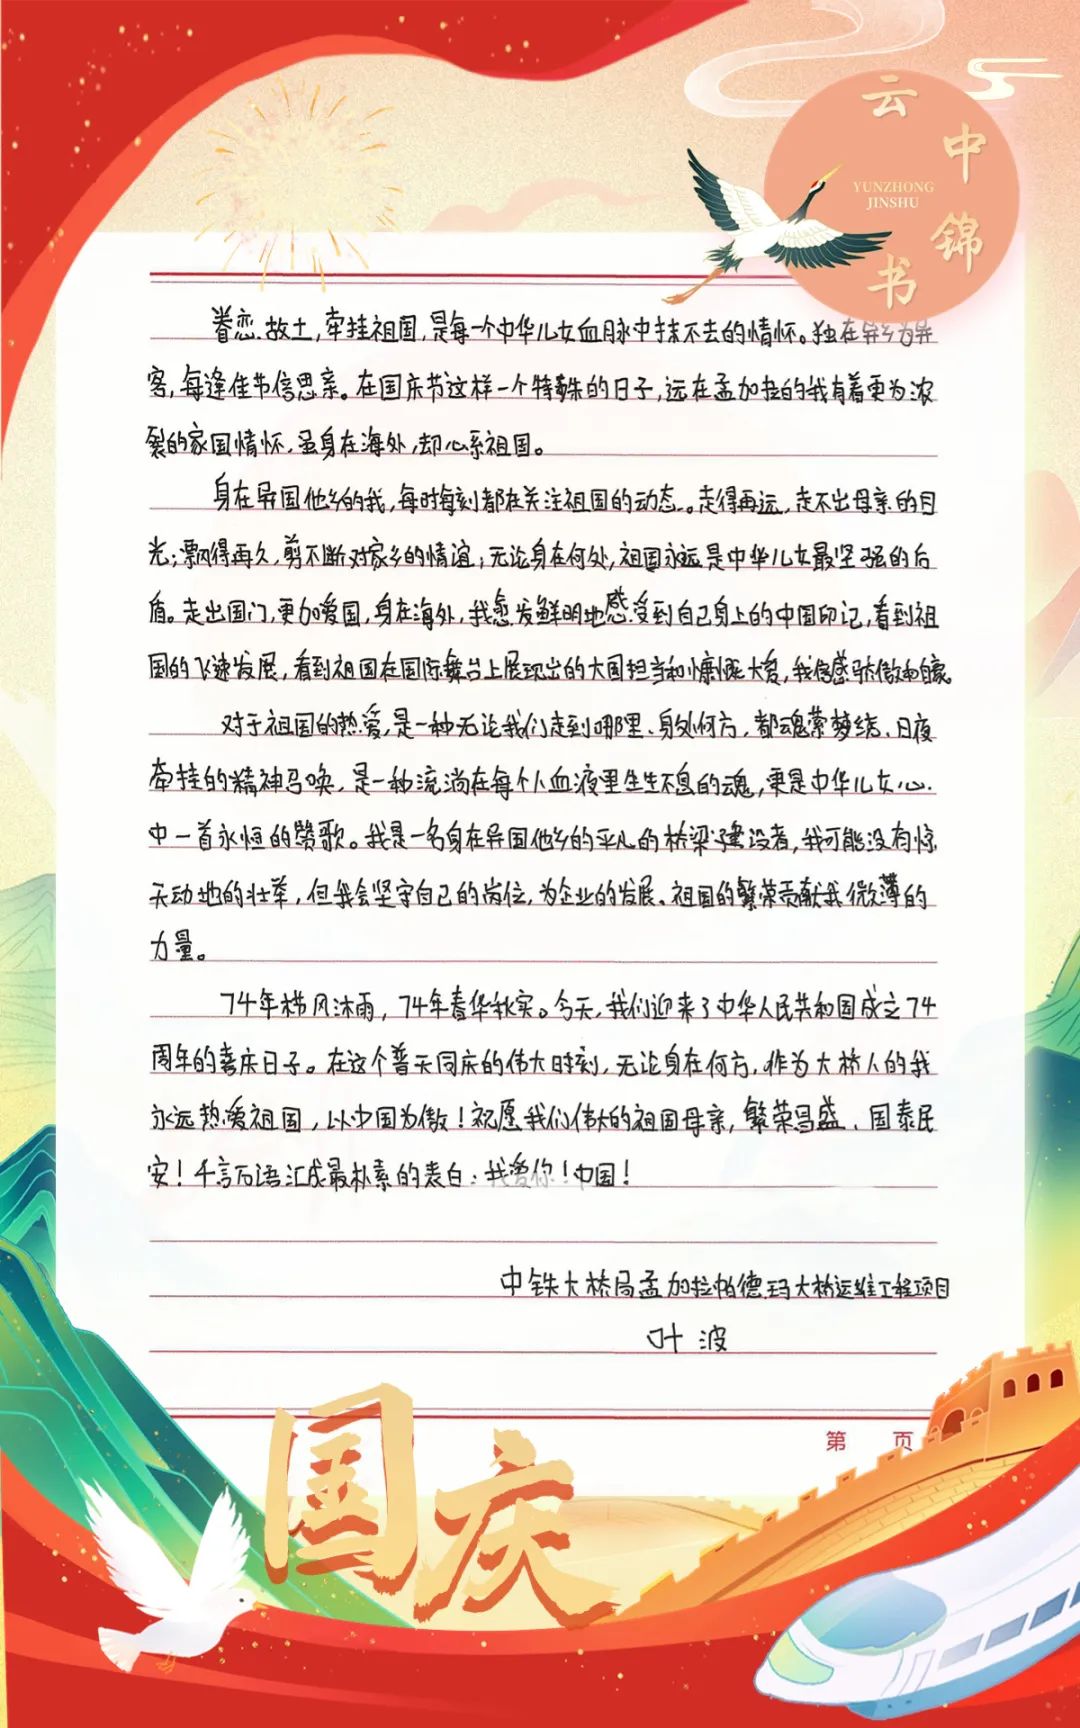 云中锦书
YUNZHONG
JINSHU
眷恋故土，牵挂祖国，是每一个中华儿女血脉中抹不去的情怀。独在异乡为异
客，每逢佳节倍思亲。在国庆节这样一个特殊的日子，远在孟加拉的我有着更为浓
裂的家国情怀，虽身在海外，却心系祖国。
身在异国他乡的我，每时每刻都在关注祖国的动态。走得再远，走不出母亲的目
光；飘得再久，剪不断对家乡的情谊；无论身在何处，祖国永远是中华儿女最坚强的后
盾。走出国门，更加爱国，身在海外，我愈发鲜明地感受到自己身上的中国印记，看到祖
国的飞速发展，看到祖国在国际舞台上展现出的大国担当和慷慨大爱，我倍感骄傲和自豪。
对于祖国的热爱，是一种无论我们走到哪里、身处何方，都魂萦梦绕、日夜
牵挂的精神召唤，是一种流淌在每个人血液里生生不息的魂，更是中华儿女心
中一首永恒的赞歌。我是一名身在异国他乡的平凡的桥梁建设者，我可能没有惊
天动地的壮举，但我会坚守自己的岗位，为企业的发展、祖国的繁荣贡献我微薄的
力量。
74年栉风沐雨，74年春华秋实。今天，我们迎来了中华人民共和国成立74
周年的喜庆日子。在这个普天同庆的伟大时刻，无论身在何方，作为大桥人的我
永远热爱祖国，以中国为傲！祝愿我们伟大的祖国母亲，繁荣昌盛、国泰民
安！千言万语汇成最朴素的表白：我爱你！中国！
中铁大桥局孟加拉帕德玛大桥运维工程项目
叶波
第 页
国庆